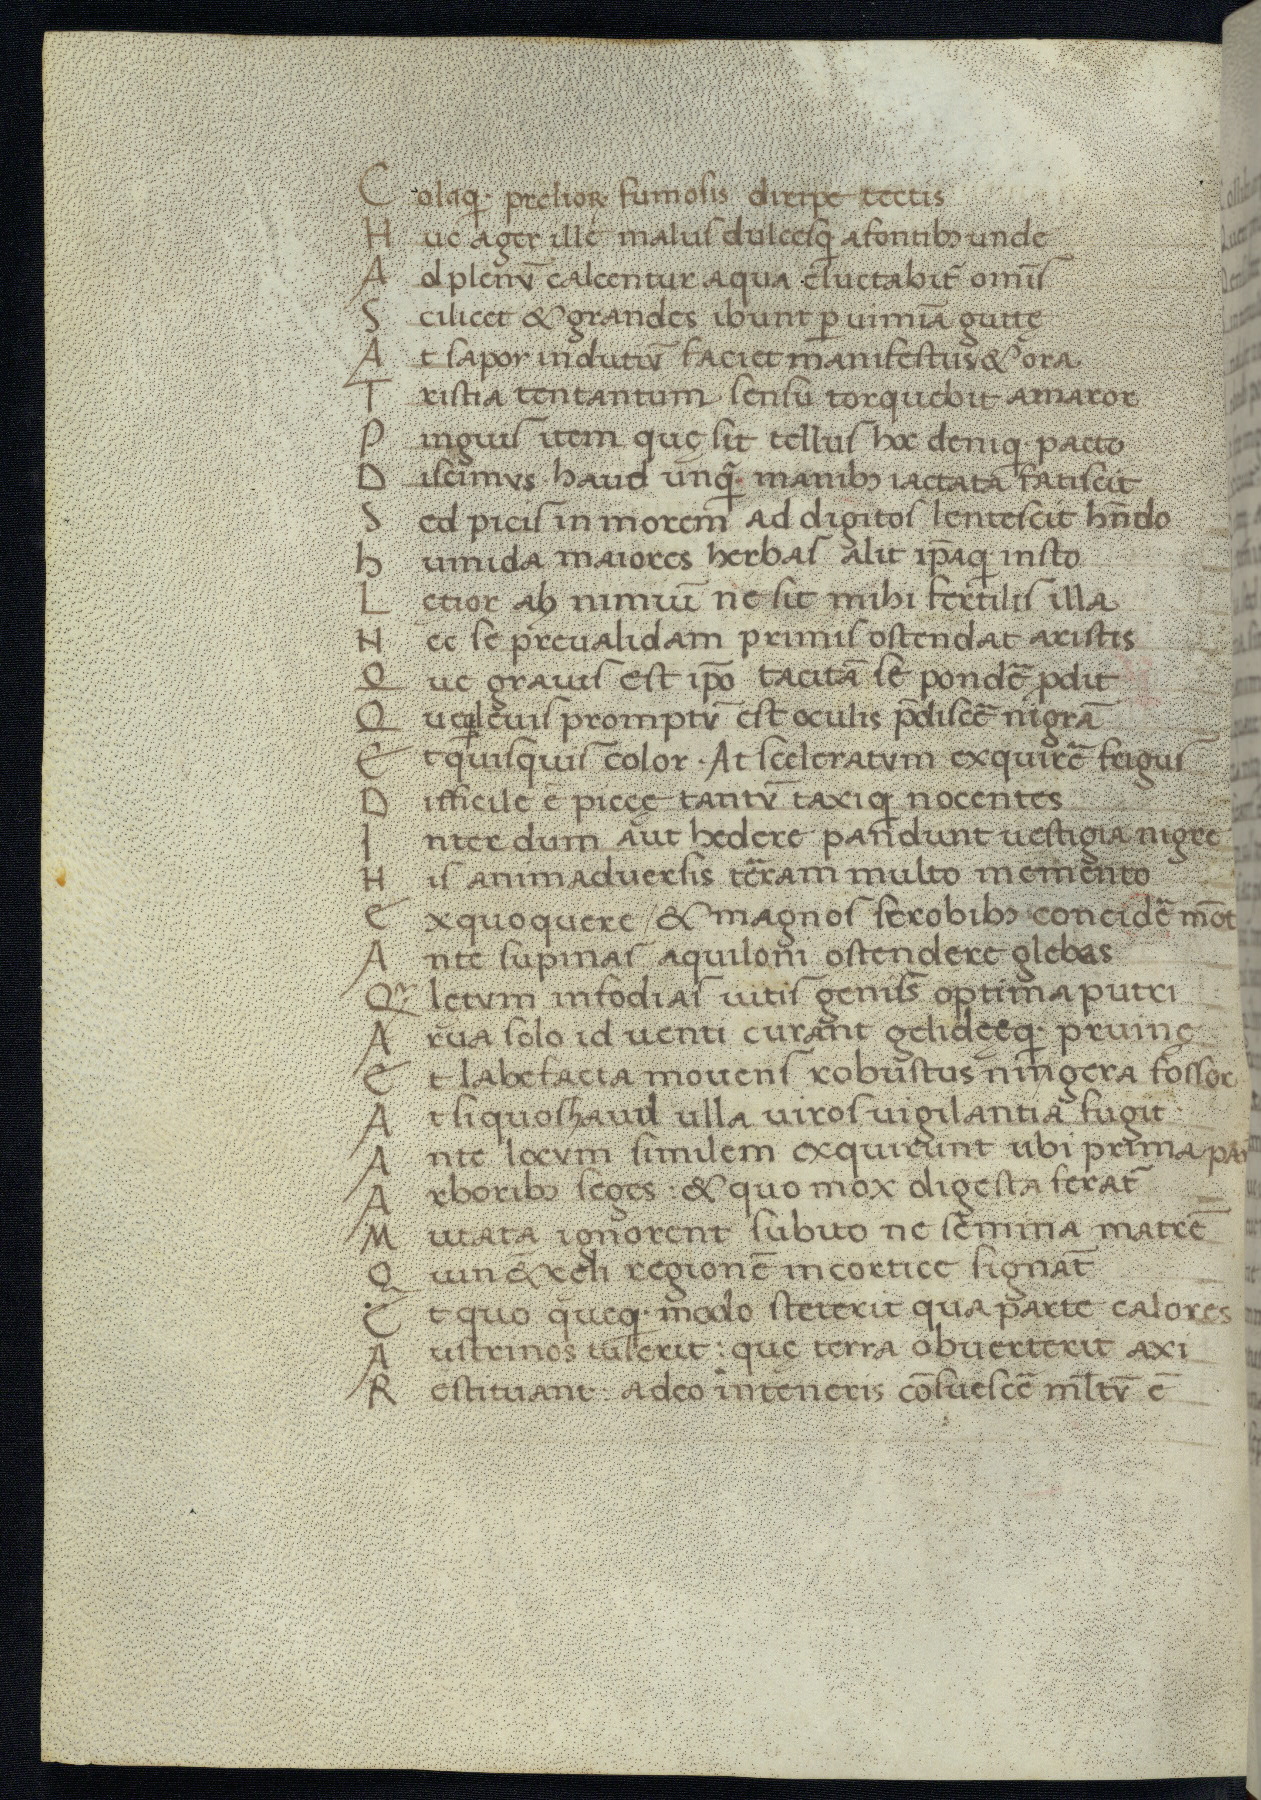 Colaq; prelioꝝ fumosis diripe tectis
Huc ager ille malus dulcesq; a fontibꝫ unde
Ad plenū calcentur aqua eluctabit̄ omīs
Scilicet & grandes ibunt ꝑ uimīa gutte
At sapor indutiū faciet manifestus & ora
Tristia tentantum sensū torquebit amaror
Pinguis item quę sit tellus hoc deniq; pacto
Discimus haud unq̄ manibꝫ iactata fatiscit
Sed picis in morem ad digitos lentescit hn̄do
humida maiores herbas alit ip̄aq; iusto
Letior ah nimiū ne sit mihi fertilis illa
Nec se preualidam primis ostendat aristis
Que grauis est ip̄o tacitā se pondē pdit
Queq; leuis promptū est oculis p̄discē nigrā
Et quisquis color · At sceleratum exquirē frigus
Difficile ē piceę tantū taxiq; nocentes
Interdum aut hedere pandunt uestigia nigre
His animaduersis terram multo memento
Exquoquere / & magnos scrobibꝫ concidē mōt
Ante supinas aquiloni ostendere glebas
Qr̄ letum infodias uitis genus optima putri
Arua solo id uenti curant gelideeq; pruinę
Et labefacta mouens robustus ningera fossor
At si quos haud ulla uiros uigilantia fugit
Ante locum similem exquirunt ubi prima par
Arboribꝫ seges : & quo mox digesta ferat̄
Mutata ignorent subito ne semina matrē
Quin & celi regionē in cortice signāt
Et quo queq; modo steterit qua parte calores
Austrinos tulerit : quę terra obuerterit axi
Restituant : adeo in teneris cōsuescē mltū ē